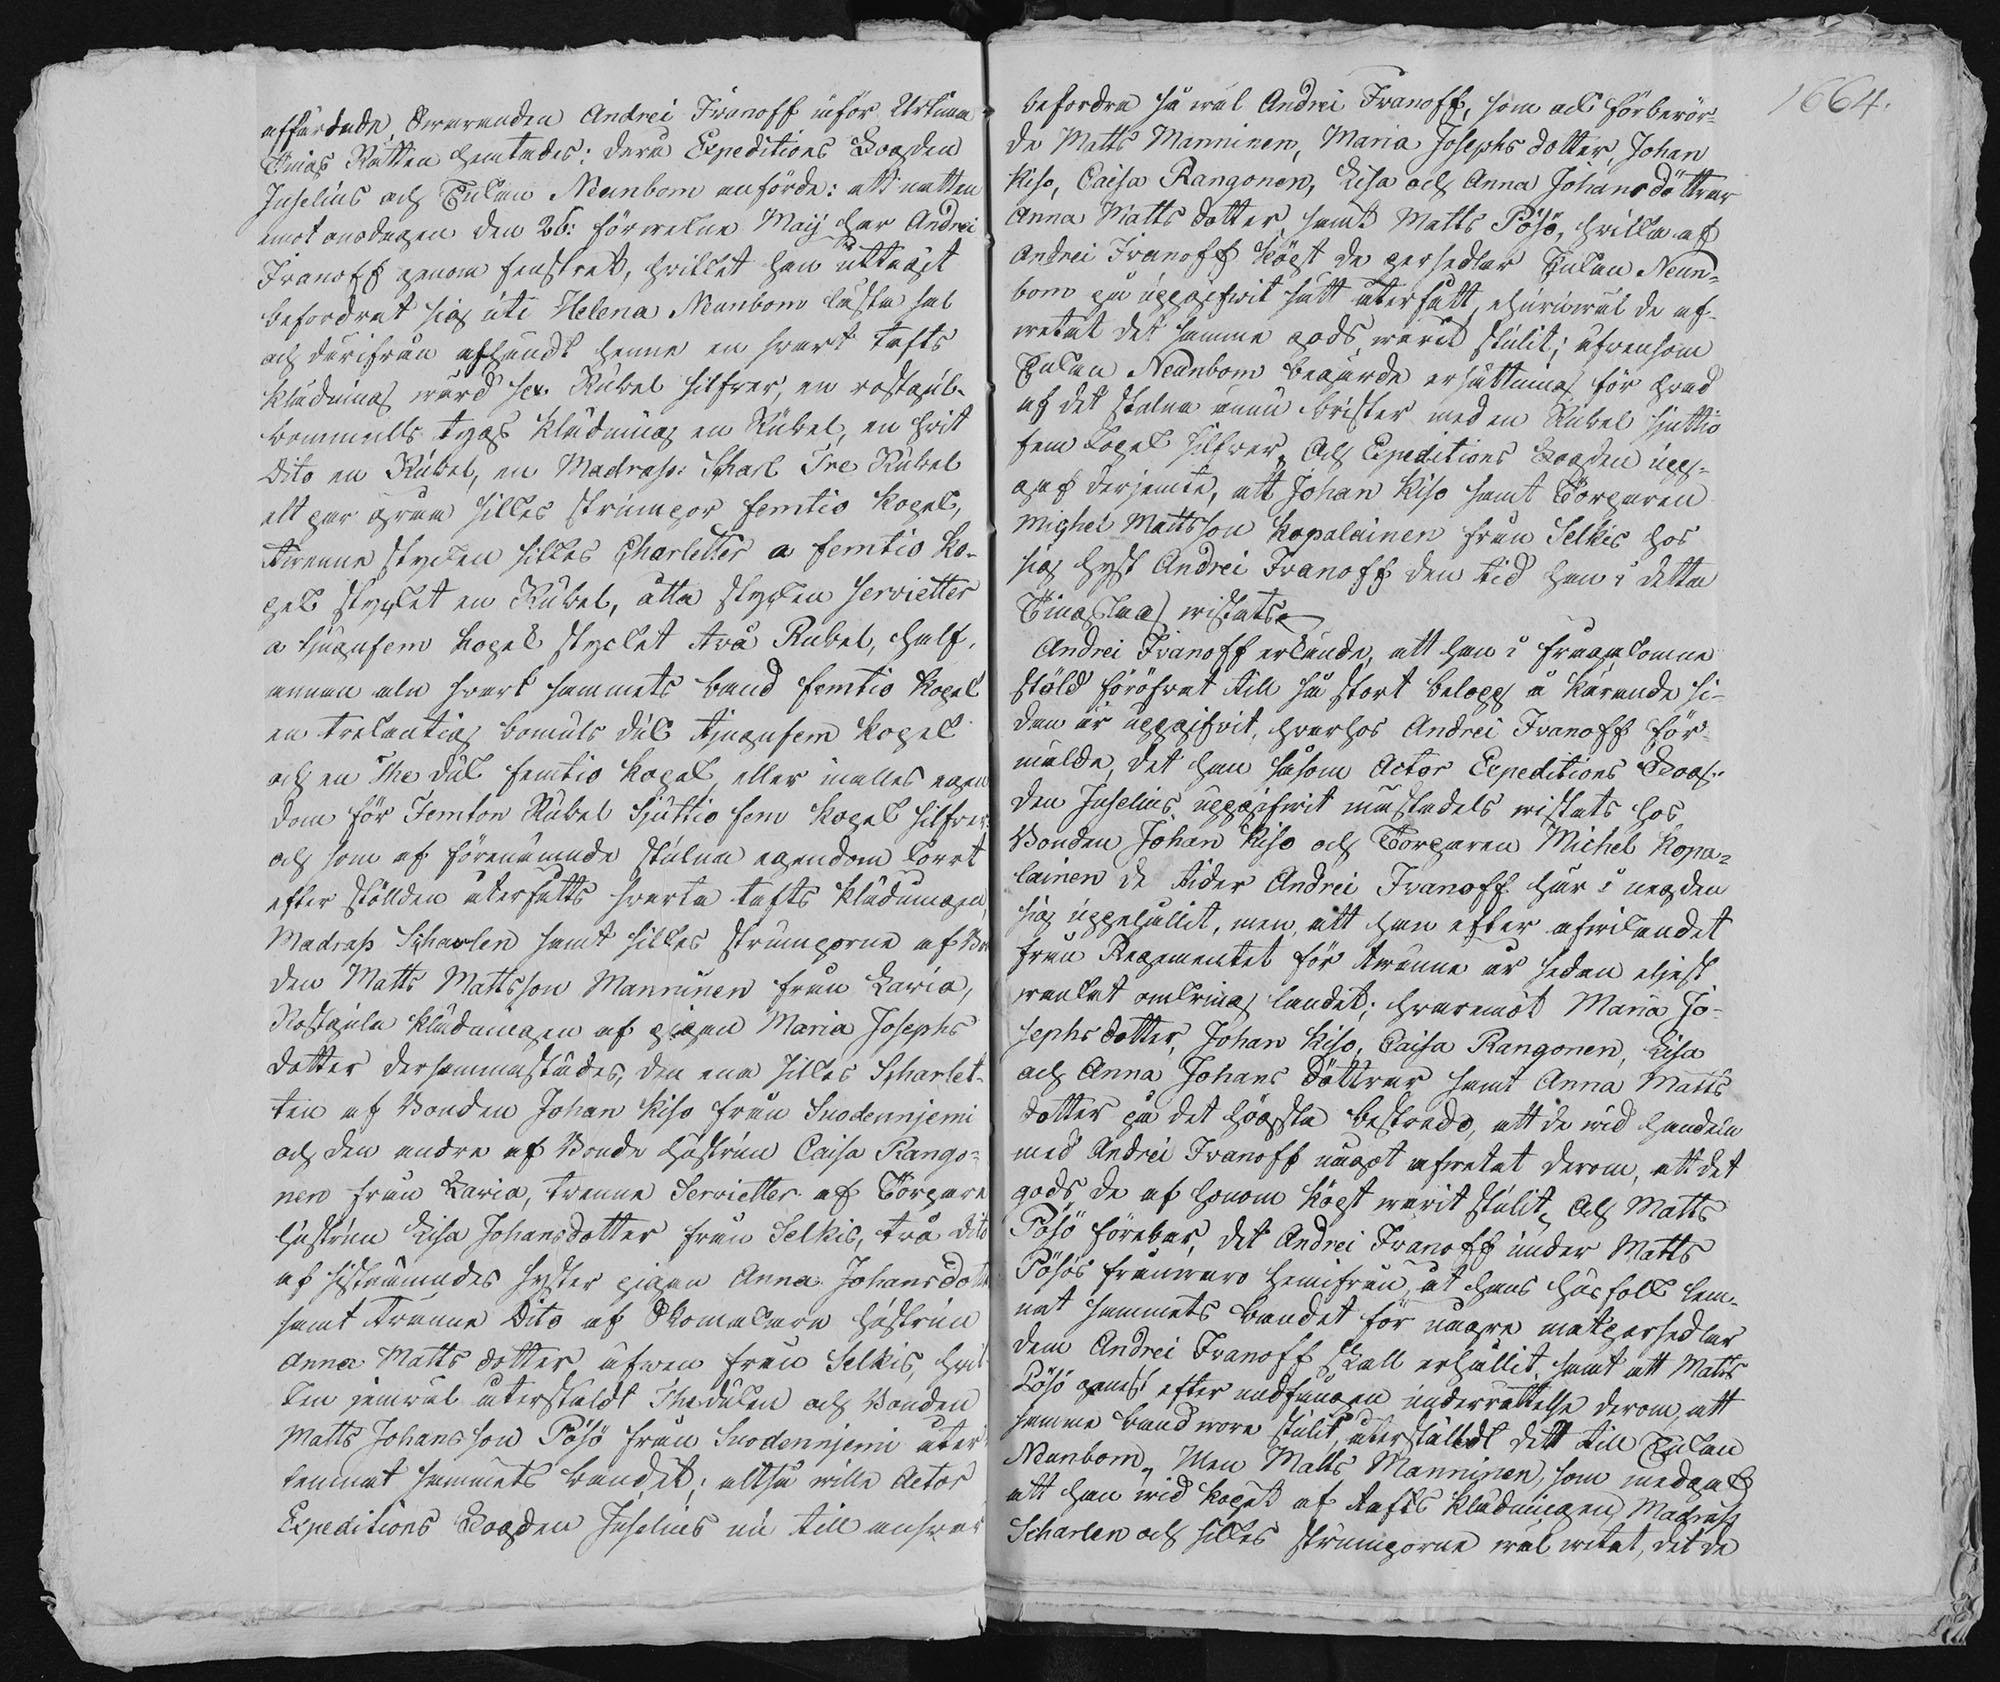 affärdade, Swaranden Andrei Ivanoff inför Urtima
Tings Rätten hemtades; dera Expeditions Fogden
Juselius och Enkan Neunbom anförde: att natten
emot onsdagen den 26: förwekne Maij har Andrei
Ivanoff genom fenstret, hvilket han uttagit
befordrat sig uti Helena Neunboms låsta sal
och därifrån afhändt henne en svart Tafts
klädning wärd sex Rubel silfver, en rostgul
bommulls tygs klädning en Rubel, en hvit
Dito en Rubel, en Madrass: Scharl Tre Rubel
ett par gråa silkes strumpor femtio Kopek,
Tvenne stycken silkes Charletter a femtio Ko-
pek stycket en Rubel, åtta stycken Servietter
a tjugufem Kopek stycket två Rubel, half-
annan aln svart sammets band femtio Kopek
en trekantig bomuls duk tjugufem Kopek
och en The duk femtio Kopek, eller inalles egen
dom för Femton Rubel Sjuttio fem Kopek silfver
och som af förenämnde stulna egendom kort
efter stölden återfåtts svarta tafts klädningen,
Madrass Scharlen samt silkes strumporne af Bon
den Matts Mattsson Manninen från Laria,
Rostgula klädningen af pigan Maria Josephs
dotter dersammastädes, den ena silkes Scharlet-
ten af Bonden Johan Kiso från Suodennjemi
och den andra af Bonde hustrun Caisa Rango-
nen från Laria, trenne Servietter af Torpare
hustrun Lisa Johansdotter från Selkis, två dito
af sistnämndes syster pigan Anna Johansdotter
samt Trenne Dito af Skomakare hustrun
Anna Matts dotter äfwen från Selkis, hvil
ken jemwäl återstäldt Theduken och Bonden
Matts Johansson Pösö från Suodennjemi åter
lemnat sammets bandet; altså wille Actor
Expeditions Fogden Juselius nu till answar
1664.
befordra så wäl Andrei Ivanoff, som ock förberör-
de Matts Manninen, Maria Josephs dotter, Johan
Kiso, Caisa Rangonen, Lisa och Anna Johans döttrar
Anna Matts dotter, samt Matts Pösö, hvilka af
Andrei Ivanoff köpt de persedlar Enkan Neun-
bom på uppgifwit sätt återfått, ehuruwäl de af-
wetat det samma gods warit stulit; äfwensom
Enkan Neunbom begärde ersättning för hvad
af det stulna ännu brister med en Rubel sjuttio
fem Kopek silfver, Och Expeditions Fogden upp-
gaf derjemte, att Johan Kiso samt Torparen
Michel Mattsson Kopalainen från Selkis hos
sig hyst Andrei Ivanoff den tid han i detta
Tingslag wistats.
Andrei Ivanoff erkände, att han i frågakomne
stöld föröfvat till så stort belopp å kärande si-
dan är uppgifvit, hvarhos Andrei Ivanoff för-
mälde, det han såsom Actor Expeditions Fog-
den Juselius uppgifwit mästadels wistats hos
Bonden Johan Kiso och Torparen Michel Kopa-
lainen de tider Andrei Ivanoff här i negden
sig uppehållit, men, att han efter afwikandet
från Regementet för trenne år sedan eljest
wankat omkring landet; hvaremot Maria Jo-
sephs dotter, Johan Kiso, Caisa Rangonen, Lisa
och Anna Johans Döttrar samt Anna Matts
dotter på det högsta bestredo, att de wid handeln
med Andrei Ivanoff något afwetat derom, att det
gods, de af honom köpt warit stulit, Och Matts
Pösö förebar, det Andrei Ivanoff under Matts
Pösös frånwaro hemifrån, åt hans husfolk lem-
nat sammets bandet för några matpersedlar
dem Andrei Ivanoff skall erhållit, samt att Matts
Pösö genast efter undfången underrättelse derom, att
samma band wore stulit, återstäldt dett till Enkan
Neunbom, Men Matts Manninen, som medgaf
att han wid köpet af tafts klädningen, Madrass
Scharlen och silkes strumporne wäl wetat, det de